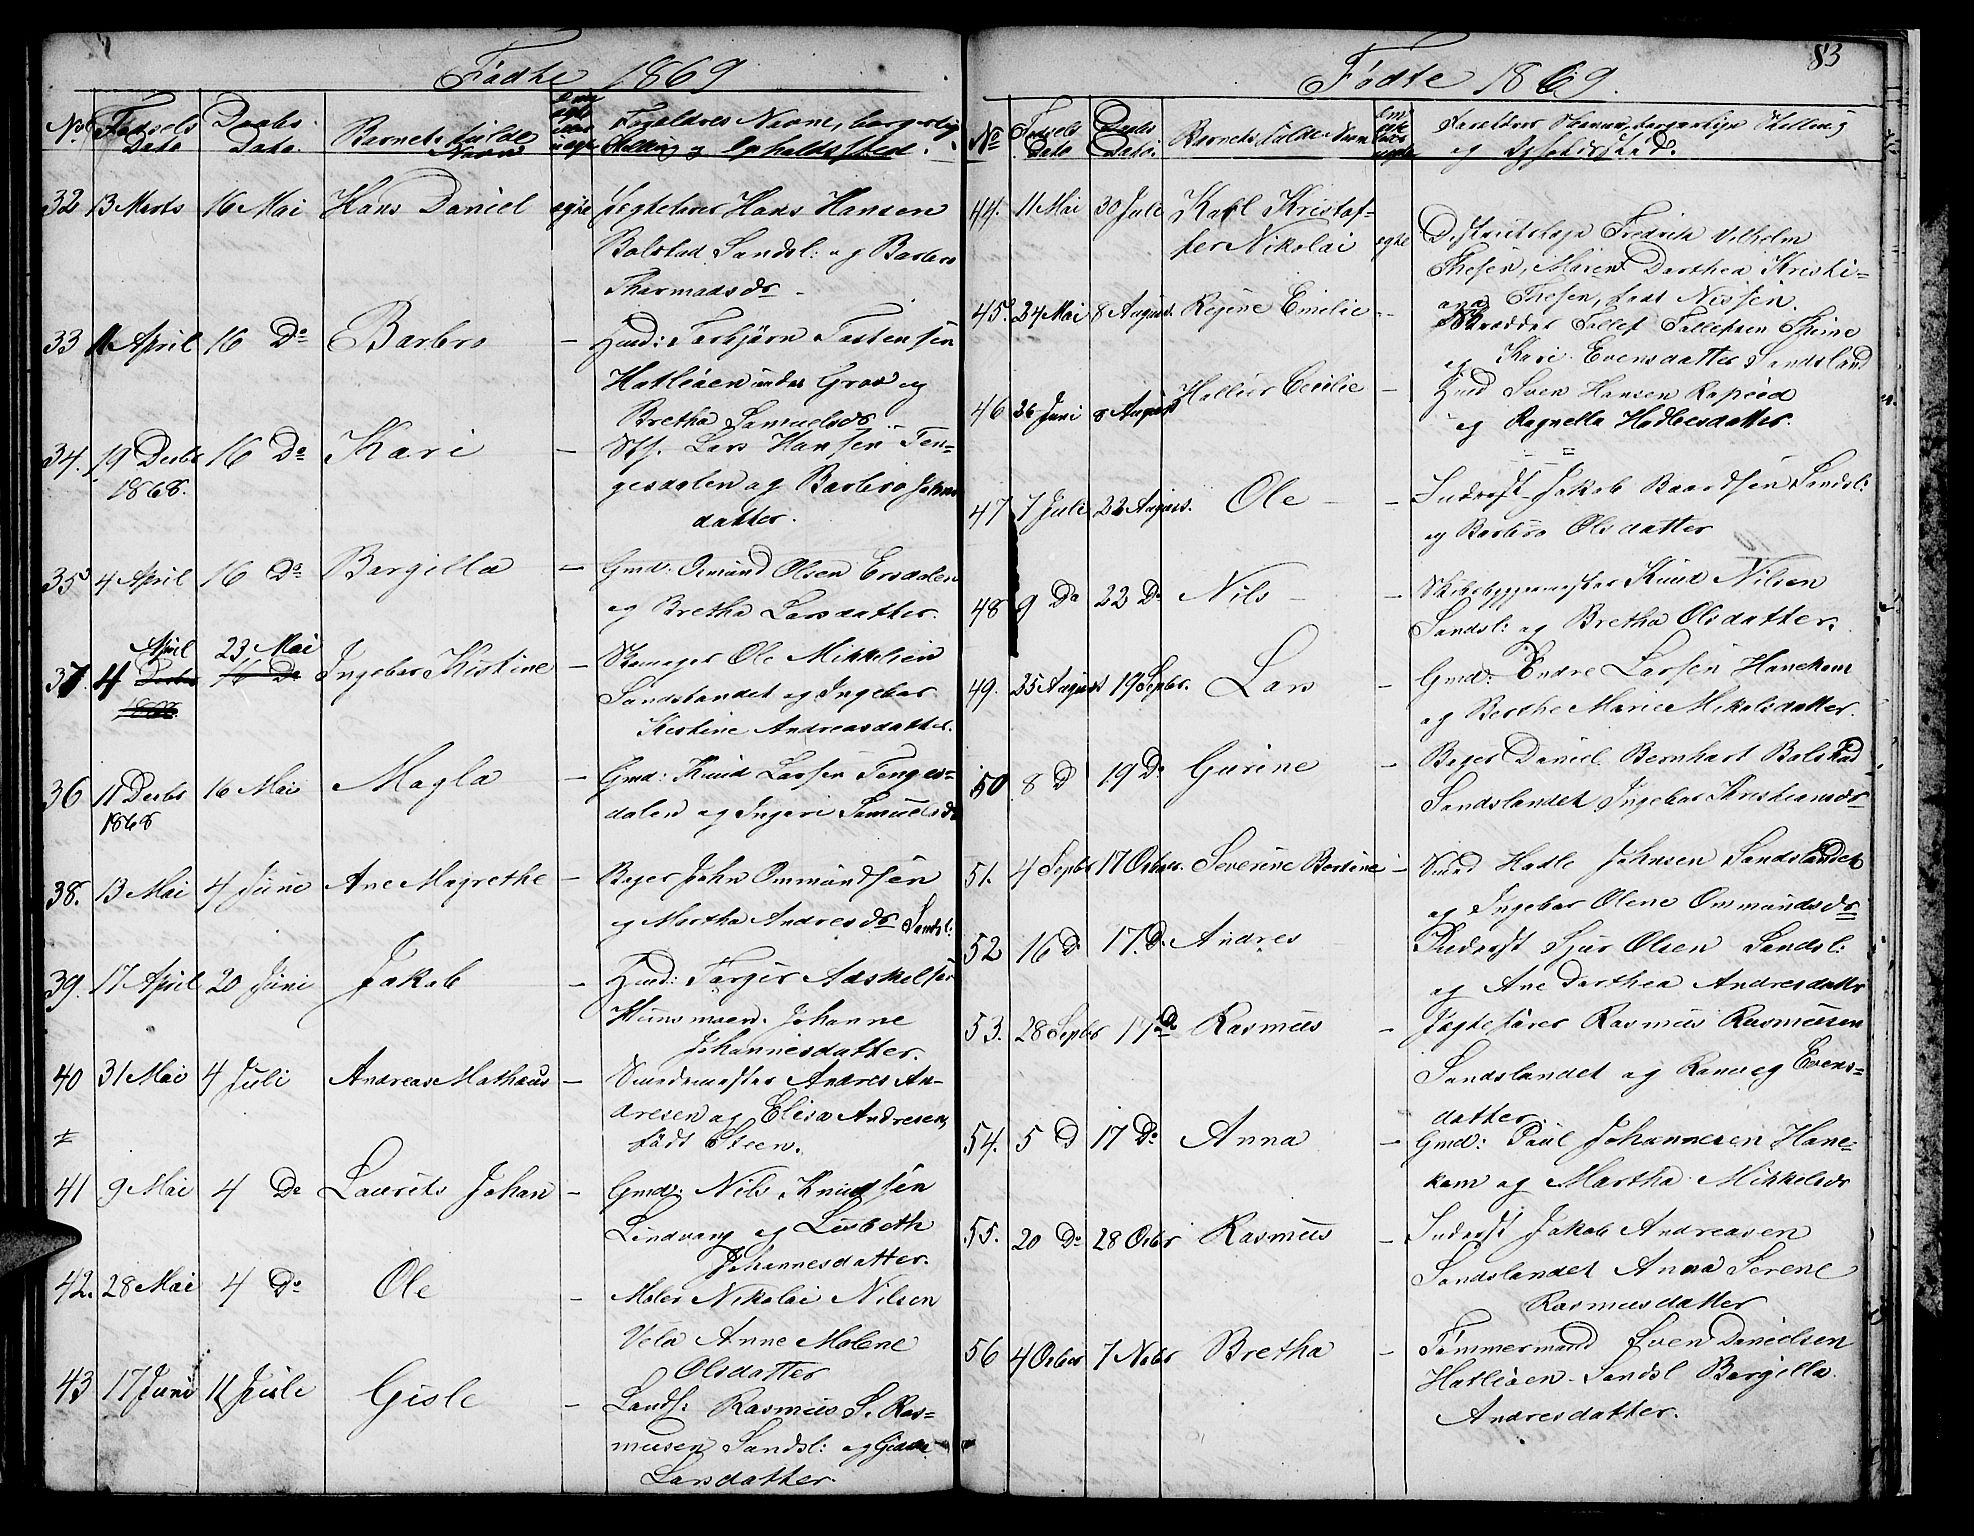 Fødte 1869
No Fødsels Dato
Daabs Dato
Barnets fulde Navn
Forældres Navne, borgerlig
Stilling og Opholdssted.
32 13 Marts 16 Mai Hans Daniel egte Jægtefører Hans Hansen
Bolstad Sandsl: og Barbro
Thormodsdr
33 11 April 16 Do Barbro — Hmd: Torbjørn Tostensen
Hatleøen under Grov og
Bretha Samuelsdr
34. 19 Decbr 16 Do Kari — Lars Hansen Ten-
1868.
gesdalen og Barbro Johns
datter.
35 4 April 16 Do Bargilla — Gmd: Omund Olsen Ersdalen
og Bretha Larsdatter.
April 23 Mai
37. 4 16 Do Ingebor Kistine — Skomager Ole Mikkelsen
Sandslandet og Ingebor
Kistine Andreasdatter.
36 11 Decbr 16 Mai Magla — Gmd: Knud Larsen Tenges-
1868
dalen og Ingeri Samuelsdr
38. 13 Mai 4 June Ane Magrethe — Bøger John Ommundsen
og Martha Andresdr Sandsl:
39. 17 April 20 Juni Jakob — Hmd: Torger Aaskelsen
Hunsmoen. Johanne
Johannesdatter.
40 31 Mai 4 Juli Andreas Mathæus — Andres An-
dresen og Elisa Andresen,
født Steen.
41 9 Mai 4 Do Laurits Johan — Gmd: Nils Knudsen
Lindvang og Lisbeth
Johannesdatter.
42. 28 Mai 4 Do Ole — Maler Nikolai Nilsen
Vela Anne Malene
Olsdatter
43 17 Juni 11 Juli Gisle — Landh: Rasmus S. Ras-
musen Sandsl: og
Larsdatter.
83
Fødte 1869.
No Fødsels Dato
Daabs Dato.
Barnets fulde Navn
Forældres Navne, borgerlige Stilling
og Opholdssted.
44. 11 Mai 30 Juli Karl Kristof- egte Distriktslæge Fredrik Vilhelm
fer Nikolai
Thesen, Maren Dorthea Kristi-
ana Thesen, født Nissen.
45. 24 Mai 8 August. Regine Emelie — Skrædder Tollef Tollefsen Theine
og Kari Evensdatter Sandsland
46 26 Juni 8 August Hallur Cecilie — Hmd Sven Hansen Rapeed
og Ragnilla Hadleesdatter.
47 7 Juli 22 August. Ole — Inderst Jakob Baardsen Sandsl:
og Barbro Olsdatter
48 9 Do 22 Do Nils — Skibsbyggemester Knud Nilsen
Sandsl: og Bretha Olsdatter.
49. 25 August 19 Septbr. Lars — Gmd: Endre Larsen Hanekam
og Berthe Marie Mikalsdatter.
50 8 D 19 Do Gurine — Bøger Daniel Bernhart Bolstad
Sandslandet Ingebor Kristiansdr
51. 4 Septbr 17 Octobr. Severine Bertine — Smed Hatle Johnsen Sandslandet
og Ingebor Olene Ommundsdr
52 16 D 17. D. Andres Inderst Sjur Olsen Sandsl:
og Ane Dorthea Andresdatter
53. 28 Septbr 17 Do Rasmus — Jægtefører Rasmus Rasmusen
Sandslandet og Ranveg Evens-
datter.
54. 5 D 17 Do Anna — Gmd: Paul Johannesen Hane-
kam og Martha Mikkelsdr
55. 20 Do 28 Octbr Rasmus — Inderst Jakob Andreasen
Sandslandet Anna Serene
Rasmusdatter
56 4 Octbr 7 Nobr Bretha — Tømmermand Sven Danielsen
Hatleøen Sandsl Bargilla
Andresdatter.